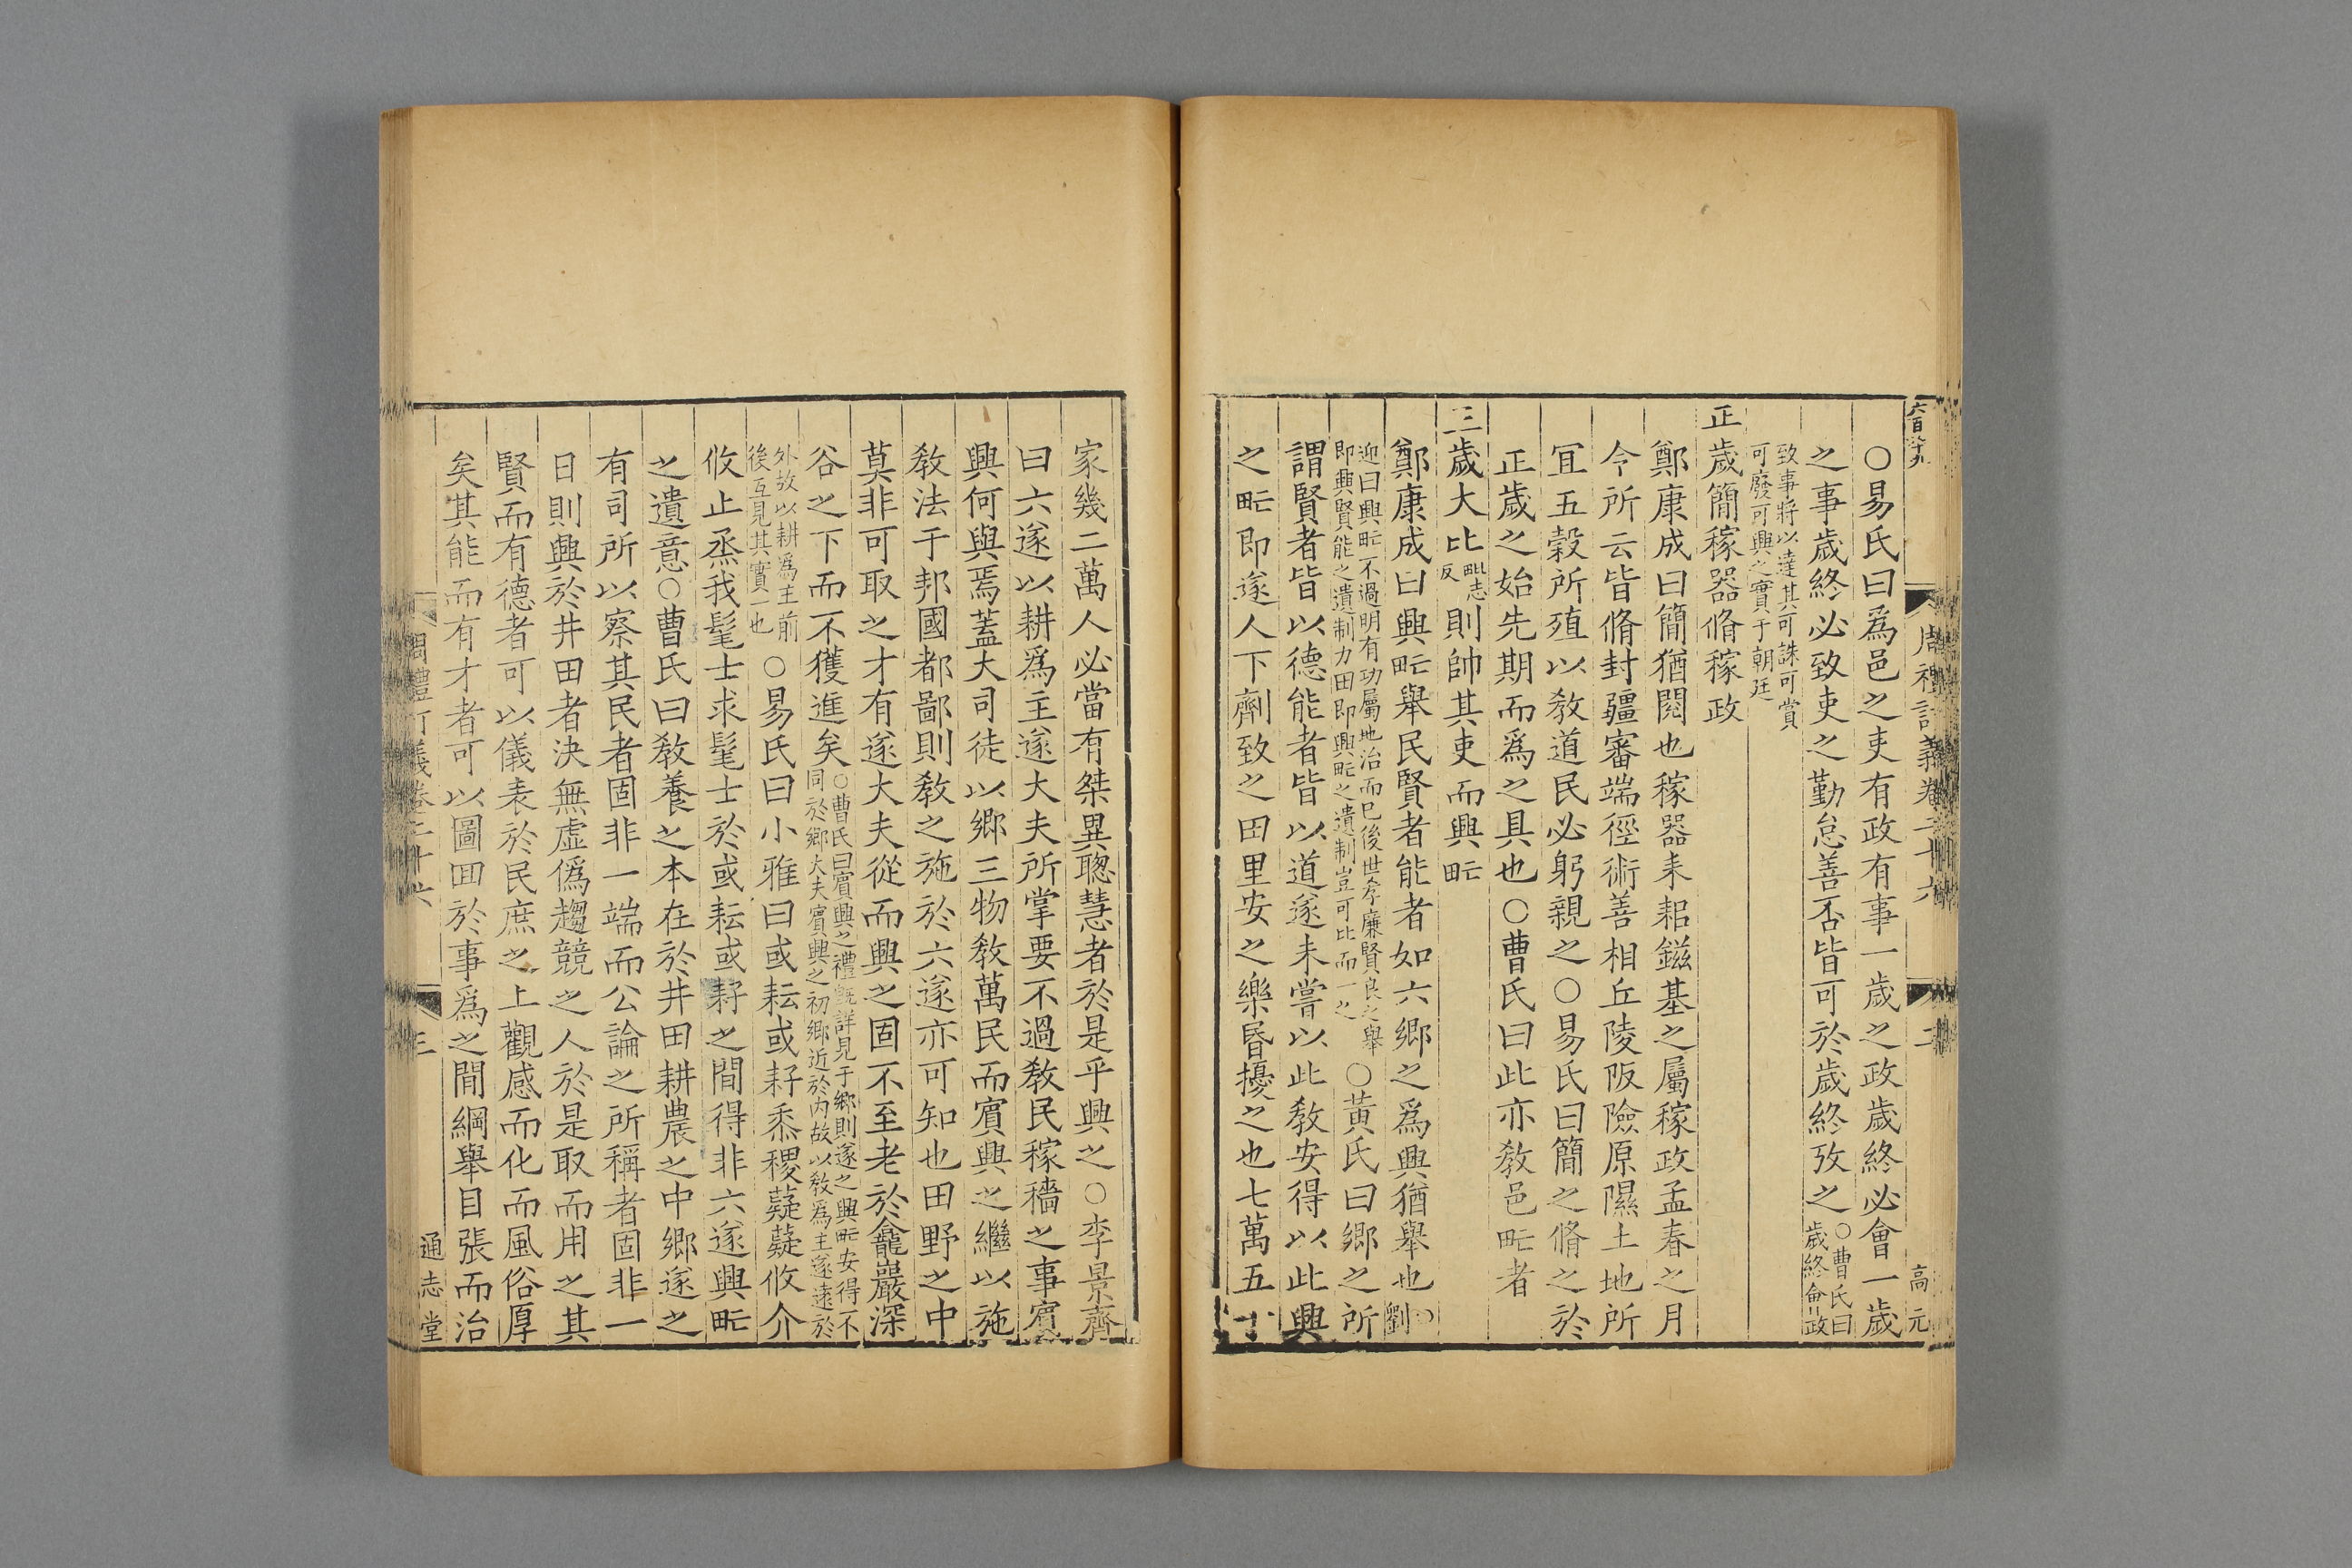 六百
周禮訂義卷二十六
二
高元
○易氏曰爲邑之吏有政有事一歲之政歲終必會一歲
之事歲終必致吏之勤怠善否皆可於歲終攷之○曹氏曰
歲終會政
致事將以達其可誅可賞
可廢可興之實于朝廷
正歲簡稼器脩稼政
鄭康成曰簡猶閱也稼器耒耜鎡基之屬稼政孟春之月
令所云皆脩封疆審端徑術善相丘陵阪險原隰土地所
宜五穀所殖以敎道民必躬親之○易氏曰簡之脩之於
正歲之始先期而爲之具也○曹氏曰此亦敎邑甿者
三歲大比毗志
反則帥其吏而興甿
鄭康成曰興甿舉民賢者能者如六鄉之爲興猶舉也○
劉
迎曰興甿不過明有功屬地治而已後世孝廉賢良之舉
即興賢能之遺制力田即興甿之遺制豈可比而一之
○黃氏曰鄉之所
謂賢者皆以德能者皆以道遂未嘗以此敎安得以此興
之甿即遂人下劑致之田里安之樂昬擾之也七萬五千
家幾二萬人必當有桀異聰慧者於是乎興之○李景齊
曰六遂以耕爲主遂大夫所掌要不過敎民稼穡之事賓
興何與焉蓋大司徒以鄉三物敎萬民而賓興之繼以施
敎法于邦國都鄙則敎之施於六遂亦可知也田野之中
莫非可取之才有遂大夫從而興之固不至老於龕巖深
谷之下而不獲進矣○曹氏曰賓興之禮旣詳見于鄉則遂之興甿安得不
同於鄉大夫賓興之初鄉近於內故以敎爲主遂遠於
外故以耕爲主前
後互見其實一也
○易氏曰小雅曰或耘或耔黍稷薿薿攸介
攸止烝我髦士求髦士於或耘或耔之間得非六遂興甿
之遺意○曹氏曰敎養之本在於井田耕農之中鄉遂之
有司所以察其民者固非一端而公論之所稱者固非一
日則興於井田者決無虛僞趨競之人於是取而用之其
賢而有德者可以儀表於民庶之上觀感而化而風俗厚
矣其能而有才者可以圖回於事爲之間綱舉目張而治
周禮訂義卷二十六
三
通志堂